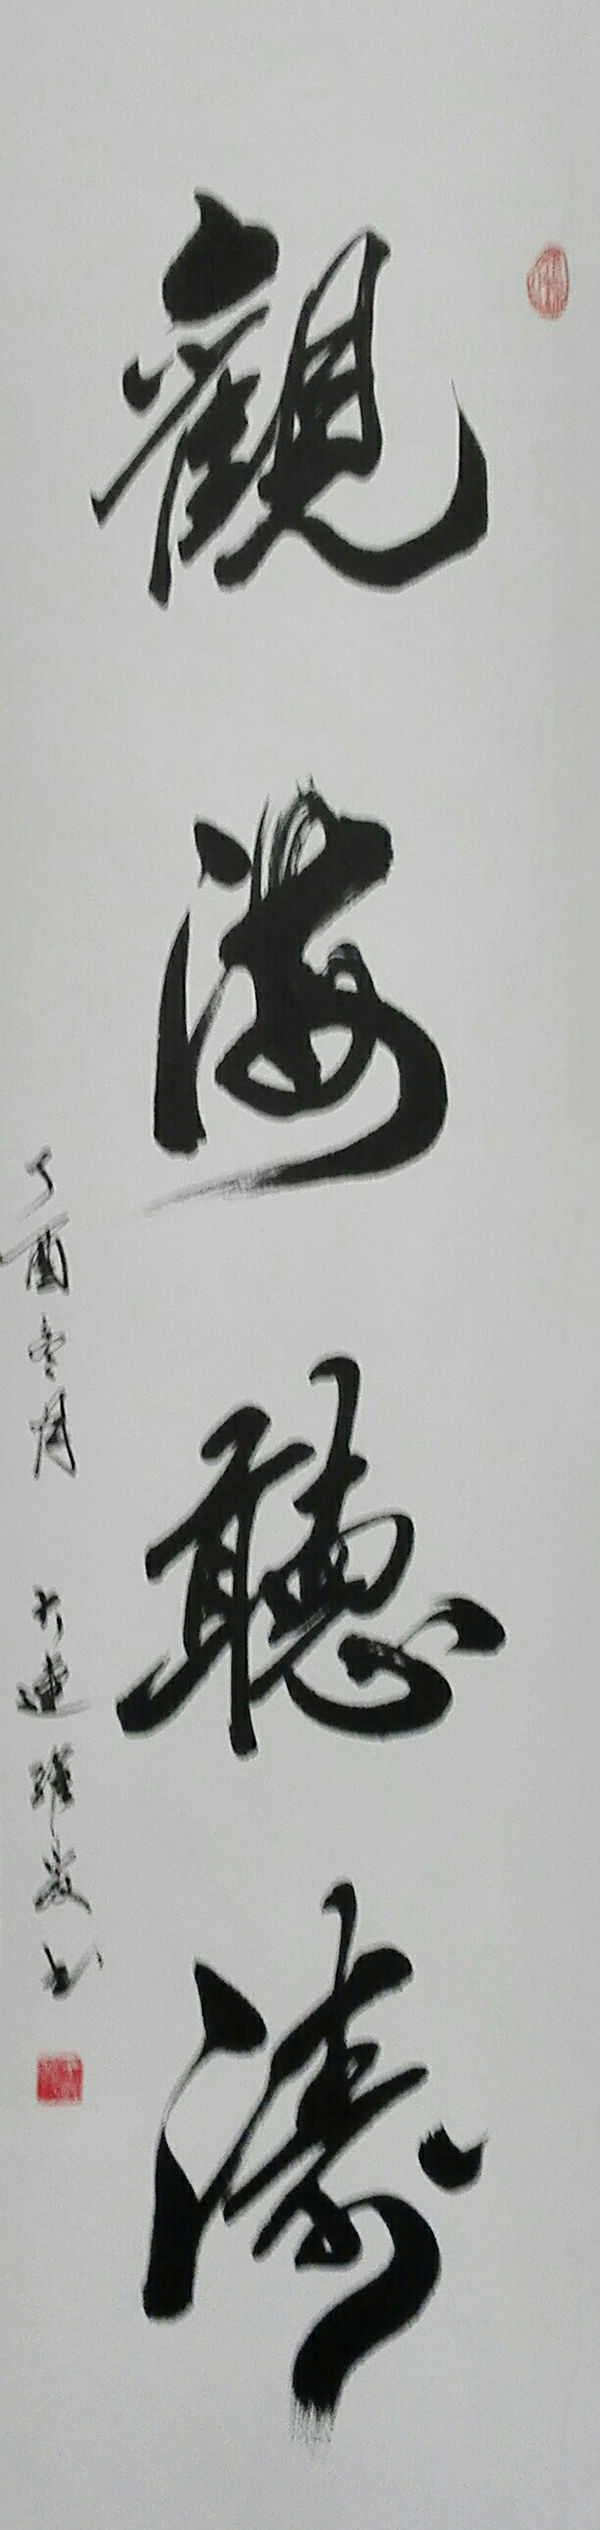 觀海聽濤
丁酉冬月 大連 書